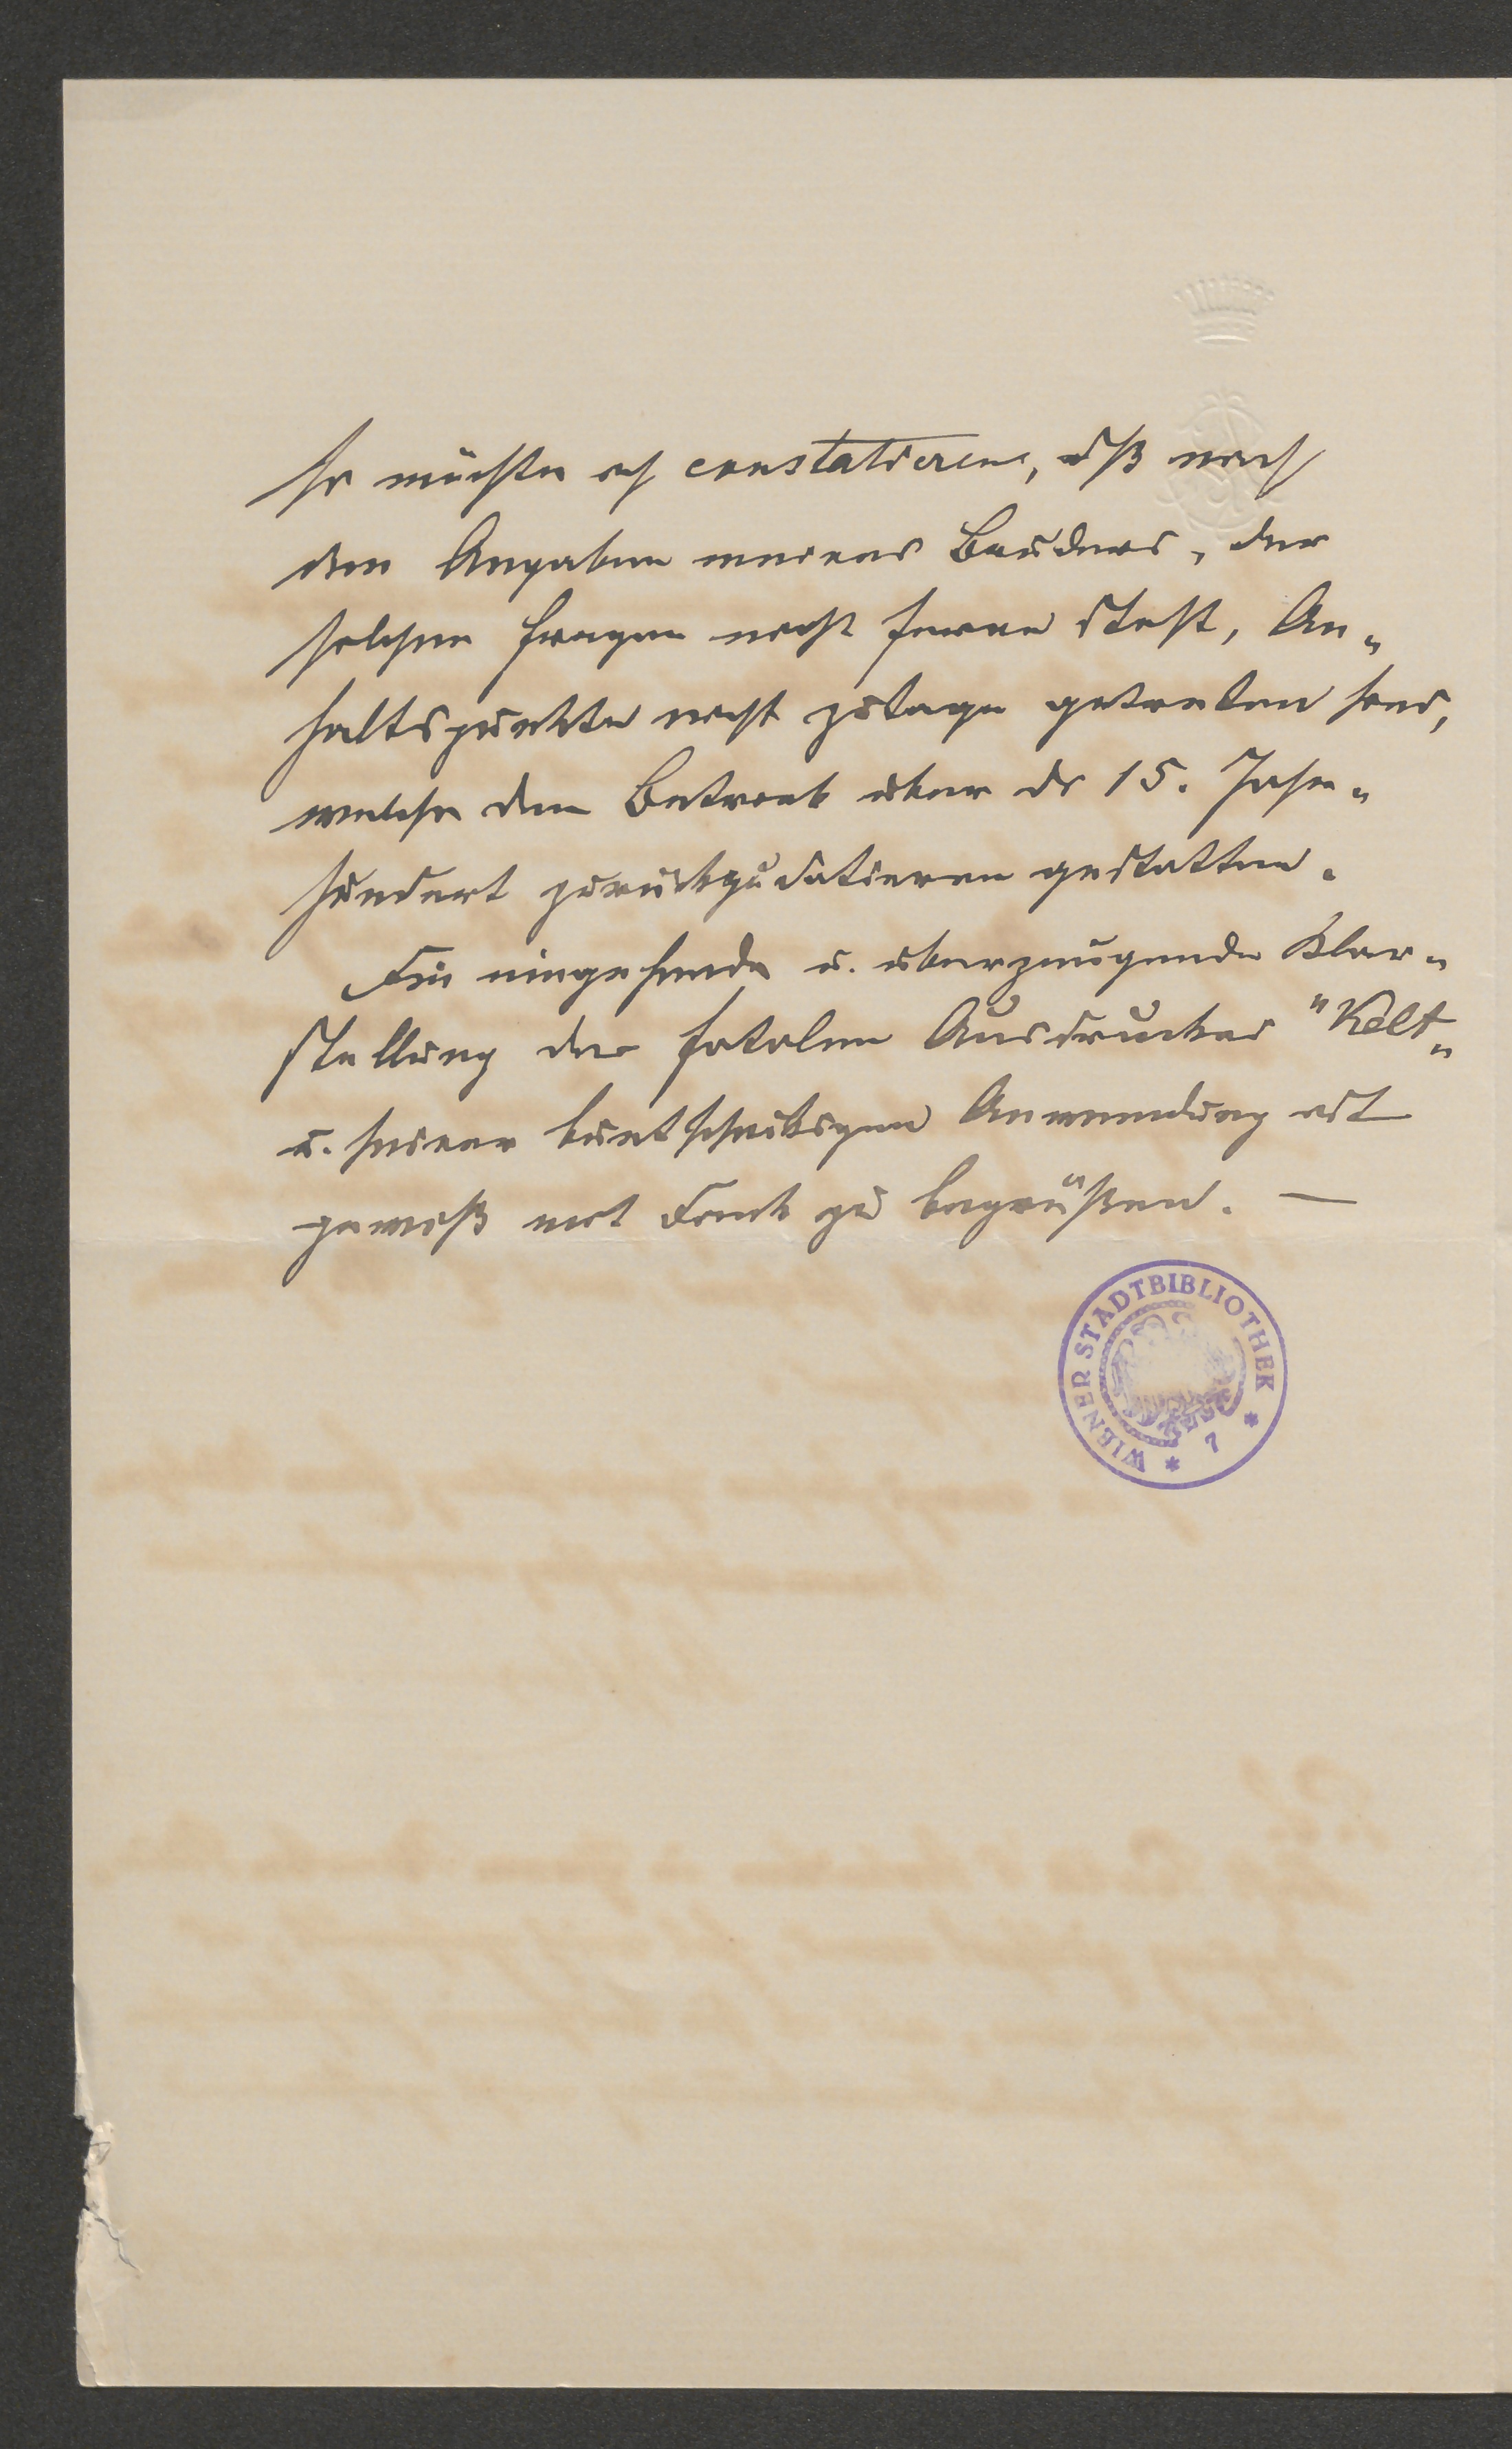 so möchte ich constatieren, dß nach
den Angaben meines Bruders, der
solchen Fragen nicht ferne steht, An„
haltspunkte nicht zutage getreten sind,
welche den Betrieb über ds 15. Jahr„
hundert zurückzudatieren gestatten.
Die eingehende u. überzeugende Klar„
stellung des fatalen Ausdruckes "Kelt„
u. seiner buntscheckigen Anwendung ist
gewiß mit Dank zu begrüßen. —
WIENER STADTBIBLIOTHEK * 7 *